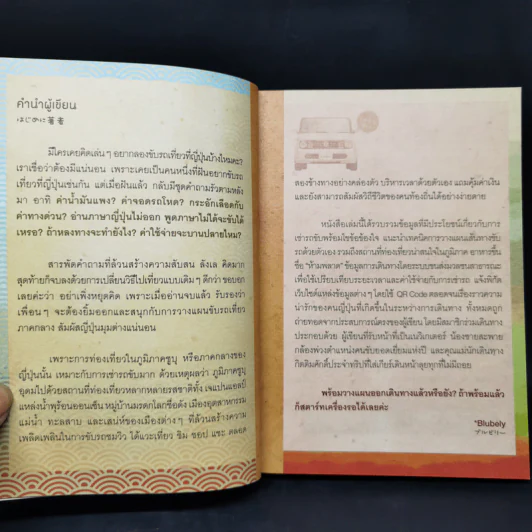 คำนำผู้เขียน
はじめに著者
มีใครเคยคิดเล่น ๆ อยากลองขับรถเที่ยวที่ญี่ปุ่นบ้างไหมคะ?
เราเชื่อว่าต้องมีแน่นอน เพราะเคยเป็นคนหนึ่งที่ฝันอยากขับรถ
เที่ยวที่ญี่ปุ่นเช่นกัน แต่เมื่อฝันแล้ว กลับมีชุดคำถามรัวตามหลัง
มา อาทิ ค่าน้ำมันแพง? ค่าจอดรถโหด? กระอักเลือดกับ
ค่าทางด่วน? อ่านภาษาญี่ปุ่นไม่ออก พูดภาษาไม่ได้จะขับได้
เหรอ? ถ้าหลงทางจะทำยังไง? ค่าใช้จ่ายจะบานปลายไหม?
สารพัดคำถามที่ล้วนสร้างความสับสน ลังเล คิดมาก
สุดท้ายก็จบลงด้วยการเปลี่ยนวิธีไปเที่ยวแบบเดิม ๆ ดีกว่า ขอบอก
เลยค่ะว่า อย่าเพิ่งหยุดคิด เพราะเมื่ออ่านจบแล้ว รับรองว่า
เพื่อน ๆ จะต้องยิ้มออกและสนุกกับการวางแผนขับรถเที่ยว
ภาคกลาง สัมผัสญี่ปุ่นมุมต่างแน่นอน
เพราะการท่องเที่ยวในภูมิภาคชูบุ หรือภาคกลางของ
ญี่ปุ่นนั้น เหมาะกับการเช่ารถขับมาก ด้วยเหตุผลว่า ภูมิภาคชูบุ
อุดมไปด้วยสถานที่ท่องเที่ยวหลากหลายรสชาติทั้ง เจแปนแอลป์
แหล่งน้ำพุร้อนออนเซ็น หมู่บ้านมรดกโลกชื่อดัง เมืองอุตสาหกรรม
แม่น้ำ ทะเลสาบ และเสน่ห์ของเมืองต่าง ๆ ที่ล้วนสร้างความ
เพลิดเพลินในการขับรถชมวิว ได้แวะเที่ยว ชิม ชอป แชะ ตลอด
สองข้างทางอย่างคล่องตัว บริหารเวลาด้วยตัวเอง แถมคุ้มค่าเงิน
และยังสามารถสัมผัสวิถีชีวิตของคนท้องถิ่นได้อย่างง่ายดาย
หนังสือเล่มนี้ได้รวบรวมข้อมูลที่มีประโยชน์เกี่ยวกับการ
เช่ารถขับพร้อมไขข้อข้องใจ แนะนำเทคนิคการวางแผนเส้นทางขับ
รถด้วยตัวเอง รวมถึงสถานที่ท่องเที่ยวน่าสนใจในภูมิภาค อาหารขึ้น
ชื่อ "ห้ามพลาด" ข้อมูลการเดินทางโดยระบบขนส่งมวลชนสาธารณะ
เพื่อใช้เปรียบเทียบระยะเวลาและค่าใช้จ่ายกับการเช่ารถ แจ้งพิกัด
เว็บไซต์แหล่งข้อมูลต่าง ๆ โดยใช้ QR Code ตลอดจนเรื่องราวความ
น่ารักของคนญี่ปุ่นที่เกิดขึ้นในระหว่างการเดินทาง ทั้งหมดถูก
ถ่ายทอดจากประสบการณ์ตรงของผู้เขียน โดยมีสมาชิกร่วมเดินทาง
ประกอบด้วย ผู้เขียนที่รับหน้าที่เป็นเนวิเกเตอร์ น้องชายสะพาย
กล้องพ่วงตำแหน่งคนขับรถยอดเยี่ยมแห่งปี และคุณแม่นักเดินทาง
กิตติมศักดิ์ประจำทริปที่ใส่เกียร์เดินหน้าลุยทุกที่ไม่มีถอย
พร้อมวางแผนออกเดินทางแล้วหรือยัง? ถ้าพร้อมแล้ว
ก็สตาร์ทเครื่องรอได้เลยค่ะ
"Blubely
ブルベリー